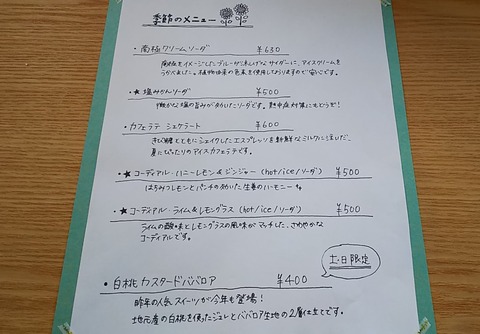 季節のメニュー
・南極クリームソーダ ¥630
南極をイメージしたブルーが涼しげなサイダーに、アイスクリームを
うかべました。植物由来の色素を使用しておりますので安心です。
・★塩みかんソーダ ¥500
微かな塩の旨みがきいたソーダです。熱中症対策にもどうぞ!
・カフェラテ シェケラート ¥600
きび糖とともにシェイクしたエスプレッソを新鮮なミルクに注いだ、
夏にぴったりのアイスカフェラテです。
・★コーディアル・ハニーレモン&ジンジャー (hot/ice/ソーダ) ¥500
はちみつレモンとパンチの効いた生姜のハーモニー
・★コーディアル・ライム&レモングラス (hot/ice/ソーダ) ¥500
ライムの酸味とレモングラスの風味がマッチした、さわやかな
コーディアルです。
土・日限定
・白桃カスタードババロア ¥400
昨年の人気スイーツが今年も登場!
地元産の白桃を使ったジュレとババロア生地の2層仕立てです。